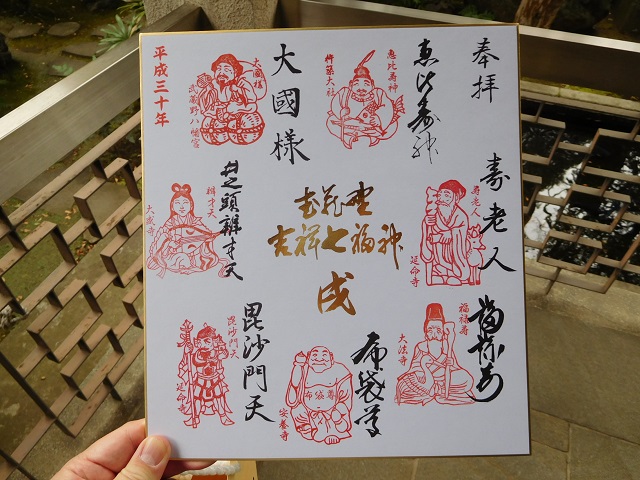 奉拝
恵比寿神
恵比寿神
杵築大社
大國様
大國様
武蔵野八幡宮
平成三十年
寿老人
寿老人
延命寺
武蔵野
吉祥七福神
戌
井之頭辨才天
辨才天
大盛寺
福禄寿
福禄寿
大法寺
布袋尊
布袋尊
安養寺
毘沙門天
毘沙門天
延命寺